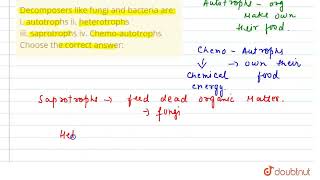 Decomposers like fungi and bacteria are:
i. autotrophs ii. heterotrophs
iii. saprotrophs iv. Chemo-autotrophs
Choose the correct answer:
Autotrophs - org
make own
their food.
Chemo - Autrophs
↳ → own their
Chemical food
energy.
Saprotrophs → feed dead organic matter.
→ fungi
Het
doubtnut